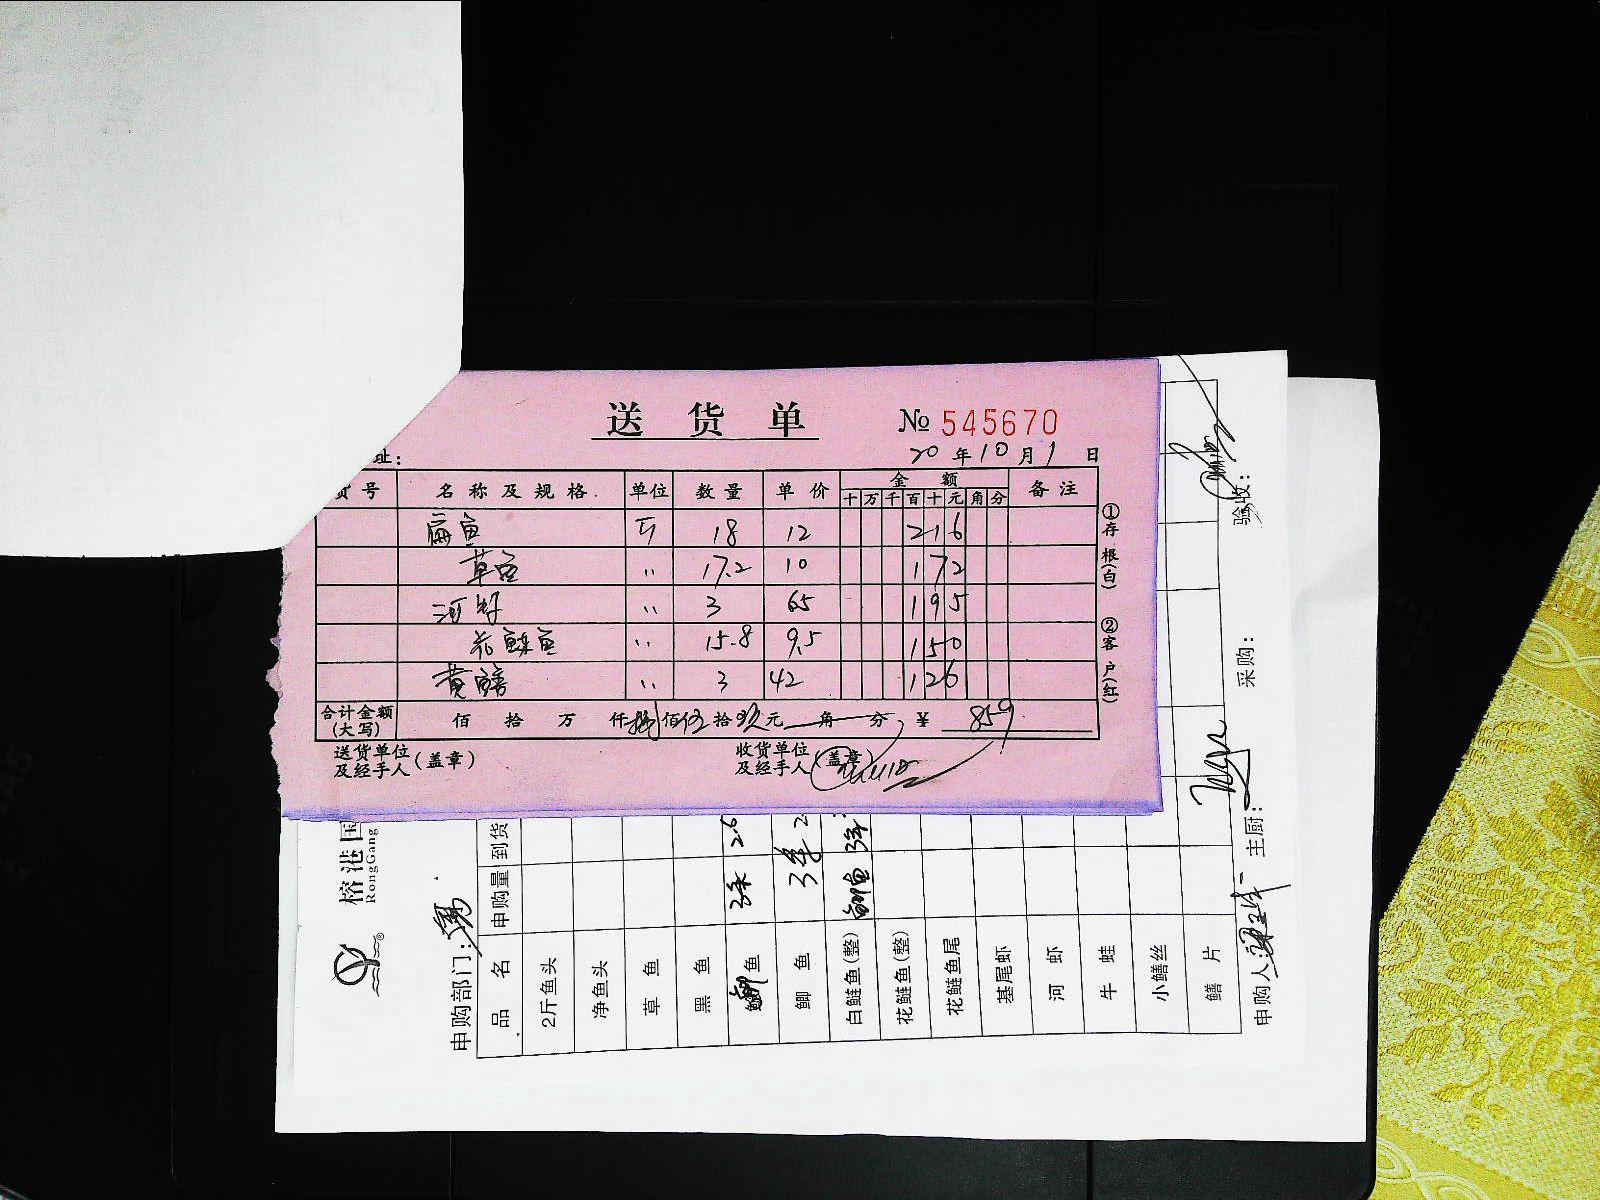 送 货 单
№ 545670
址:
20 年 10 月 1 日
货 号 名 称 及 规 格 单位 数 量 单 价 金 额 备 注
十 万 千 百 十 元 角 分
扁鱼 斤 18 12 216
草鱼 〃 17.2 10 172
河虾 〃 3 65 195
花鲢鱼 〃 15.8 9.5 150
黄鳝 〃 3 42 126
合计金额(大写) 佰 拾 万 仟 捌 佰 伍 拾 玖 元 角 分 ¥ 859
送货单位及经手人(盖章) 收货单位及经手人(盖章)
①存根(白) ②客户(红)
榕港国
RongGang
申购部门:
品 名 申购量 到货
2斤鱼头
净鱼头
草 鱼
黑 鱼
鱼 3条 2.6
鲫 鱼 3条
白鲢鱼(整)
花鲢鱼(整)
花鲢鱼尾
基尾虾
河 虾
牛 蛙
小鳝丝
鳝 片
申购人: 主厨: 采购: 验收: